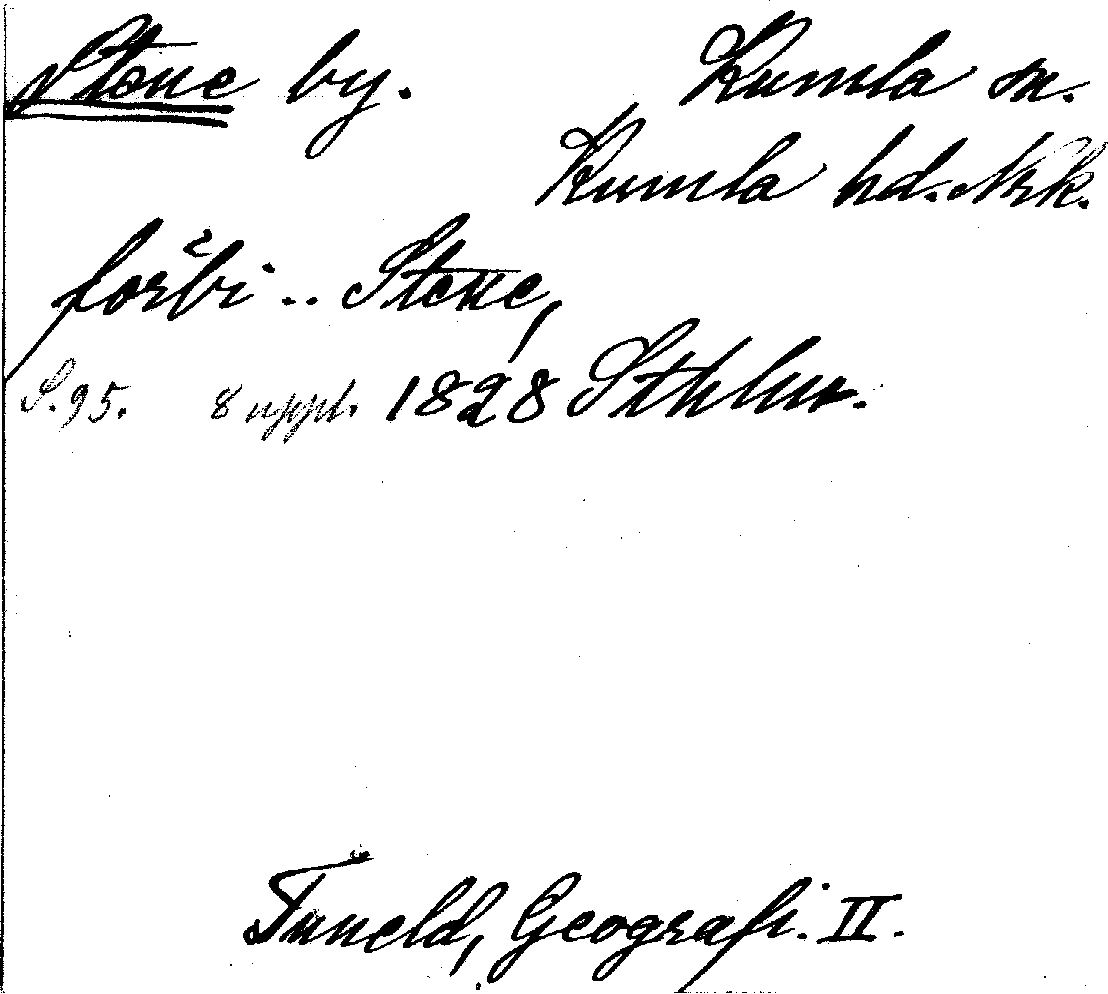 Stene by. Kumla sn.
Kumla hd. Nrk.
förbi .. Stene,
S. 95. 8 uppl. 1828 Sthlm.
Tuneld, Geografi. II.